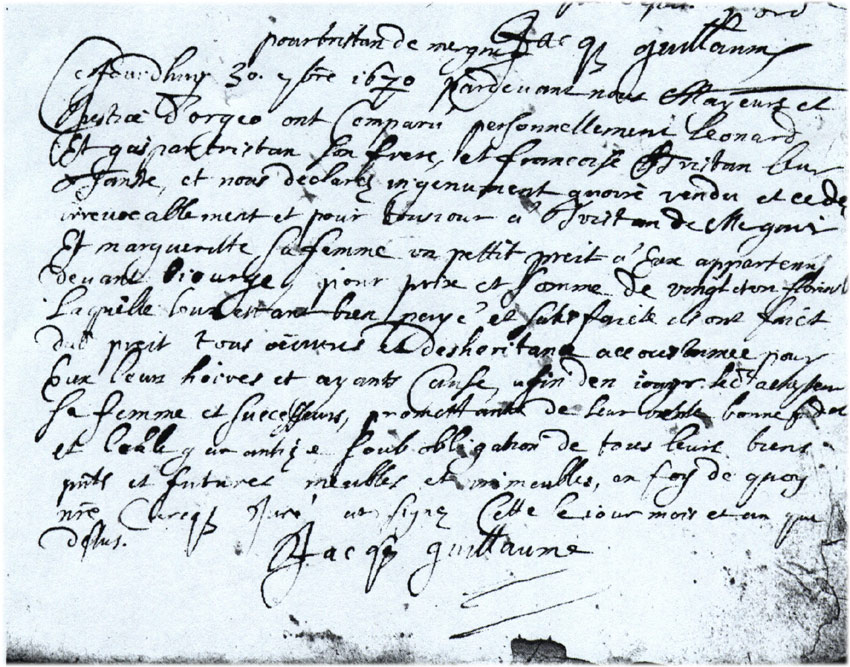 pour tristan de megni Jacq guillaume
Cejourdhuy 30. 7bre 1670 pardevant nous Mayeurs et
Justice d'orgeo ont Comparu personnellement leonard
Et gaspar tristan son frere, et francoise tristan leur
tante, et nous declarez ingenument avoir vendu et cede
irrevocablement et pour tousiour a Tristan de Megni
Et margueritte sa femme un pettit preit a Eux appartenu
devant pour prix et somme de vingt florins
Laquelle leur estant bien payé et satisfaicte ils ont faict
du preit tous oeuvres et desheritance accoustumee pour
Eux leurs hoires et ayants Cause, afin den iouyr
sa femme et successeurs, promettants de leur bonne
et garantise soub obligation de tous leurs biens
pnts et futures meubles et immeubles, en foy de quoy
nre Clercq Juré at signez Cette le iour mois et an que
desus.
Jacq guillaume